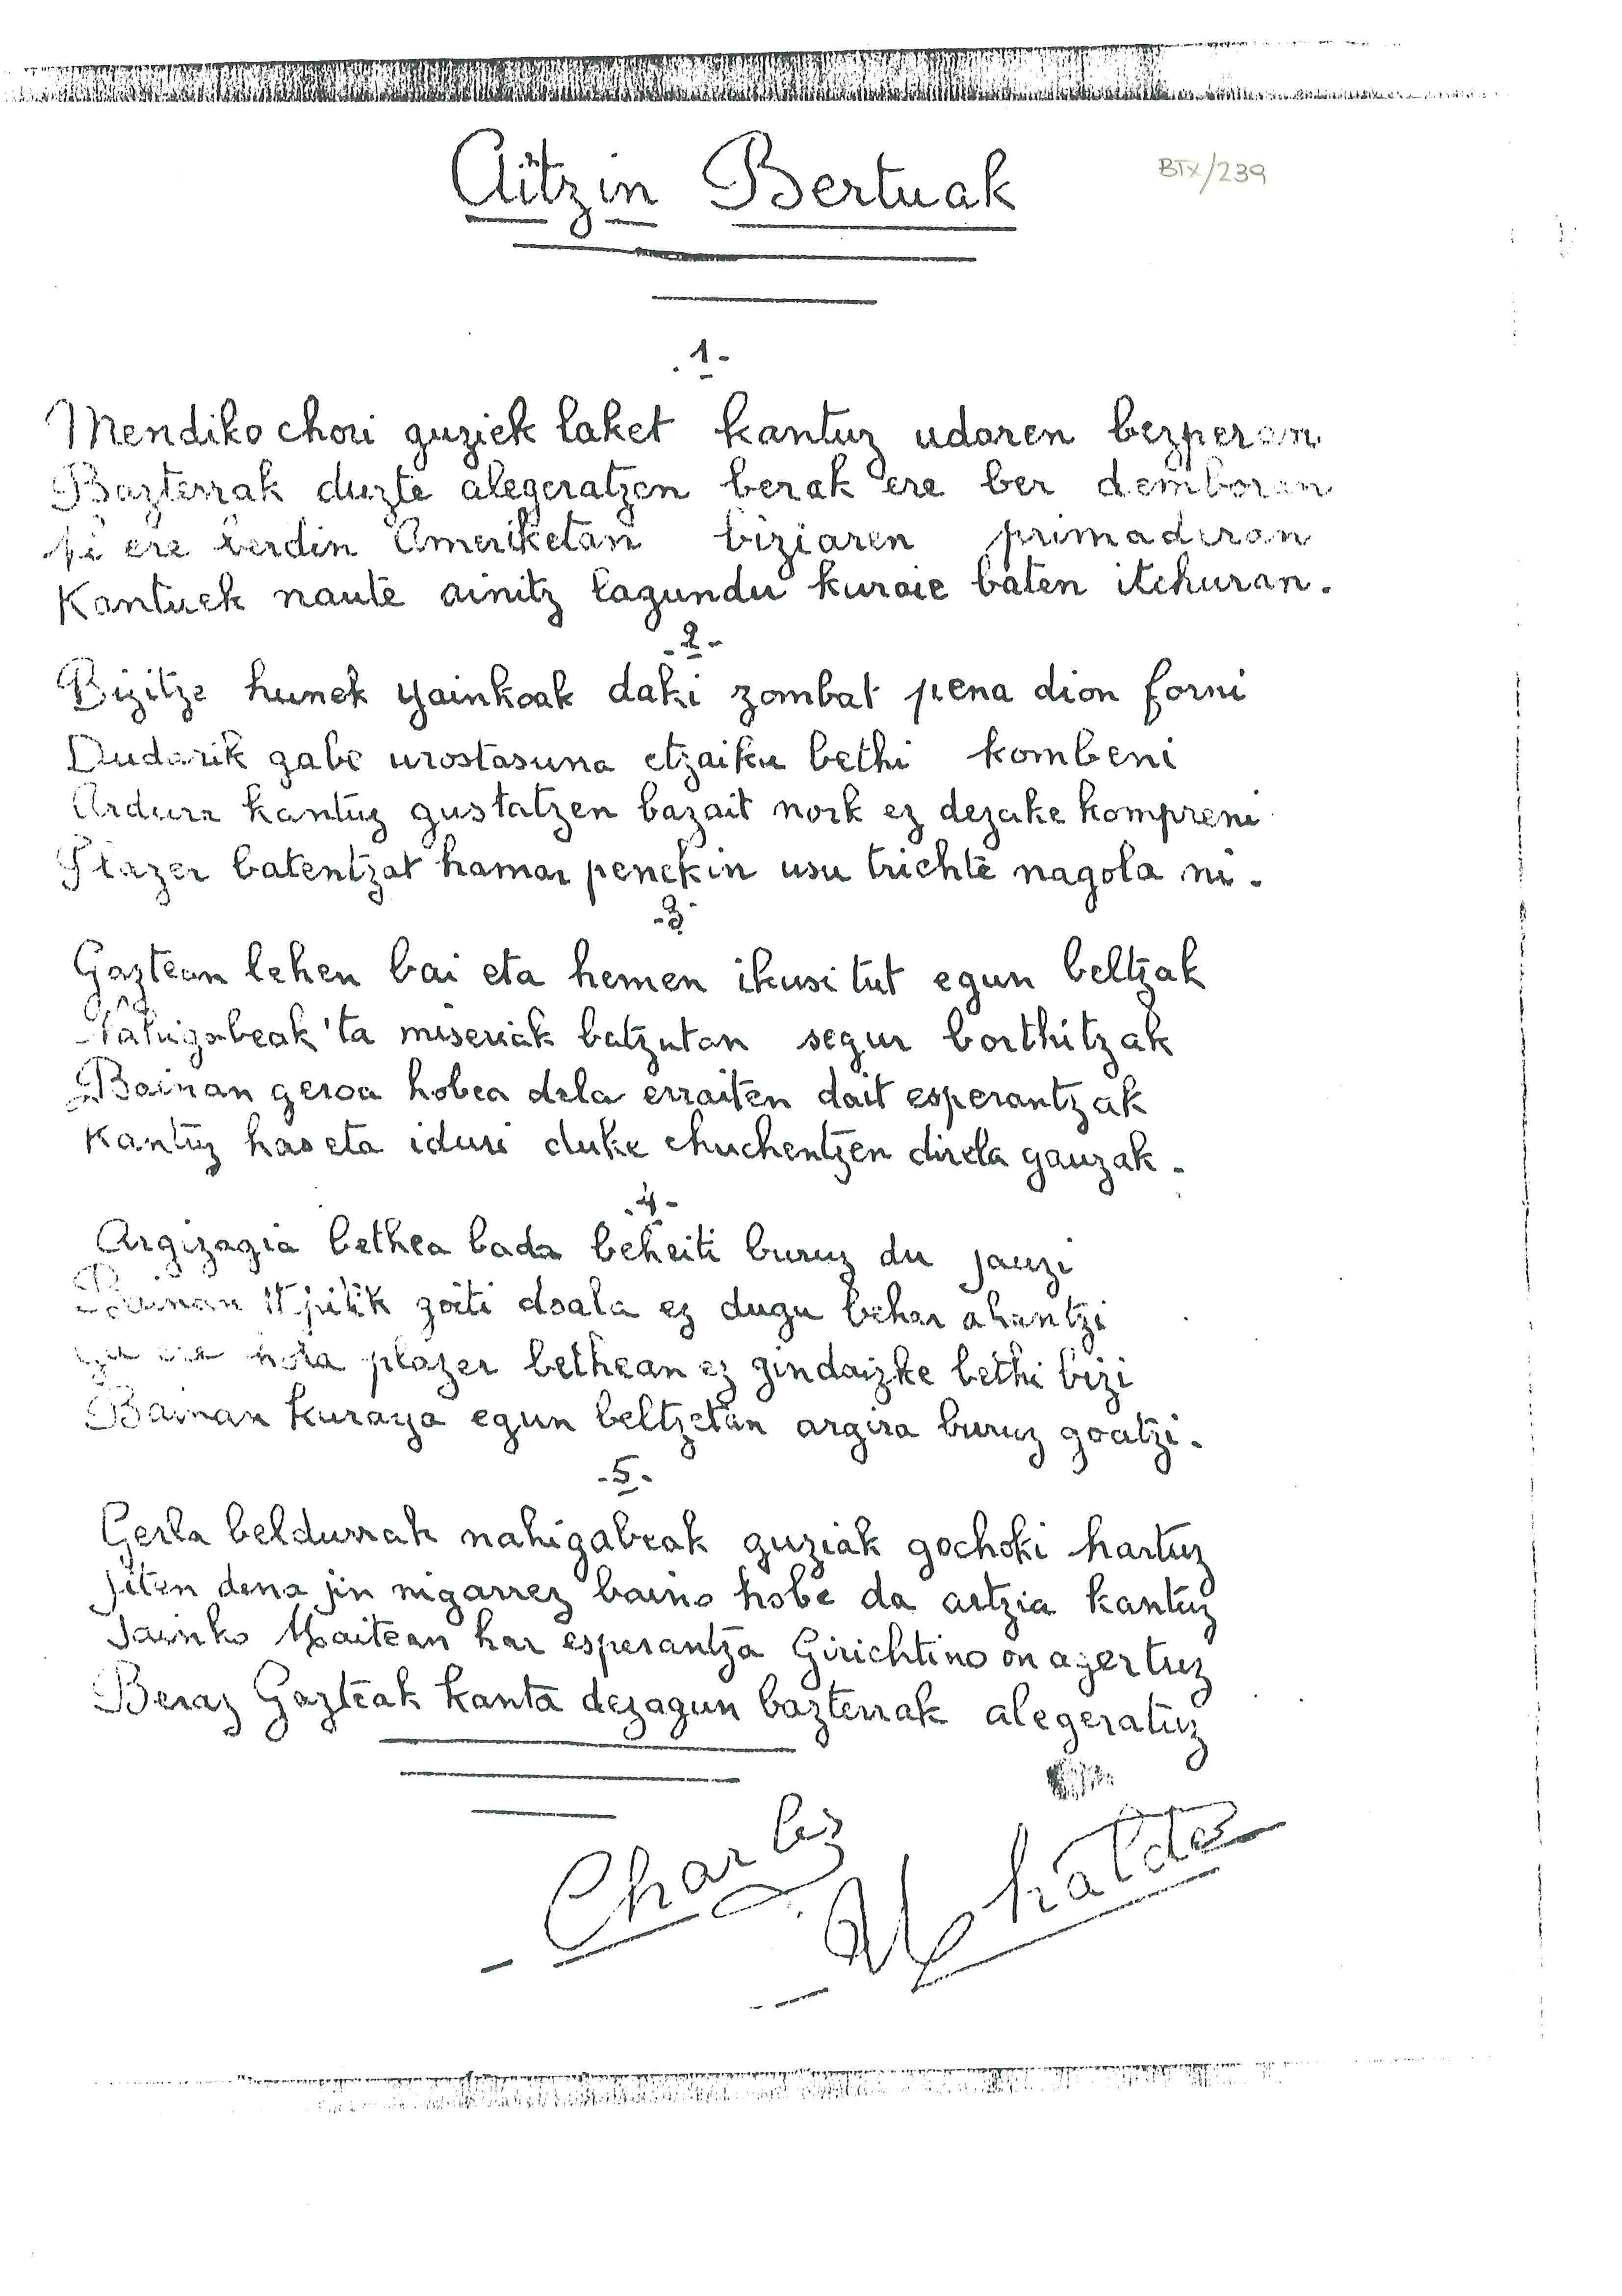 Aitzin Bertuak
BTX/239
.1-
Mendiko chori guziek laket kantuz udaren bezperan
Bazterrak duzte alegeratzen berak ere ber demboran
Ni ere berdin Ameriketan biziaren primaderan
Kantuek naute ainitz lagundu kuraie baten itchuran.
.2-
Bizitze hunek yainkoak daki zombat pena dion forni
Dudarik gabe urostasuna etzaiku bethi kombeni
Ardura kantuz gustatzen bazait nork ez dezake kompreni
Plazer batentzat hamar penekin usu trichte nagola ni.
-3-
Gaztean lehen bai eta hemen ikusi tut egun beltzak
Nahigabeak 'ta miseriak batzutan segur borthitzak
Bainan geroa hobea dela erraiten dait esperantzak
Kantuz has eta iduri duke chuchentzen direla gauzak.
.4-
Argizagia bethea bada beheiti buruz du jauzi
Bainan ttipitik goiti doala ez dugu behar ahantzi
gu ere hola plazer bethean ez gindaizke bethi bizi
Bainan kuraya egun beltzetan argira buruz goatzi.
-5-
Gerla beldurrak nahigabeak guziak gochoki hartuz
Jiten dena jin nigarrez baino hobe da aitzia kantuz
Jainko Maitean har esperantza Girichtino on agertuz
Beraz Gazteak kanta dezagun bazterrak alegeratuz
Charles
Uhalde